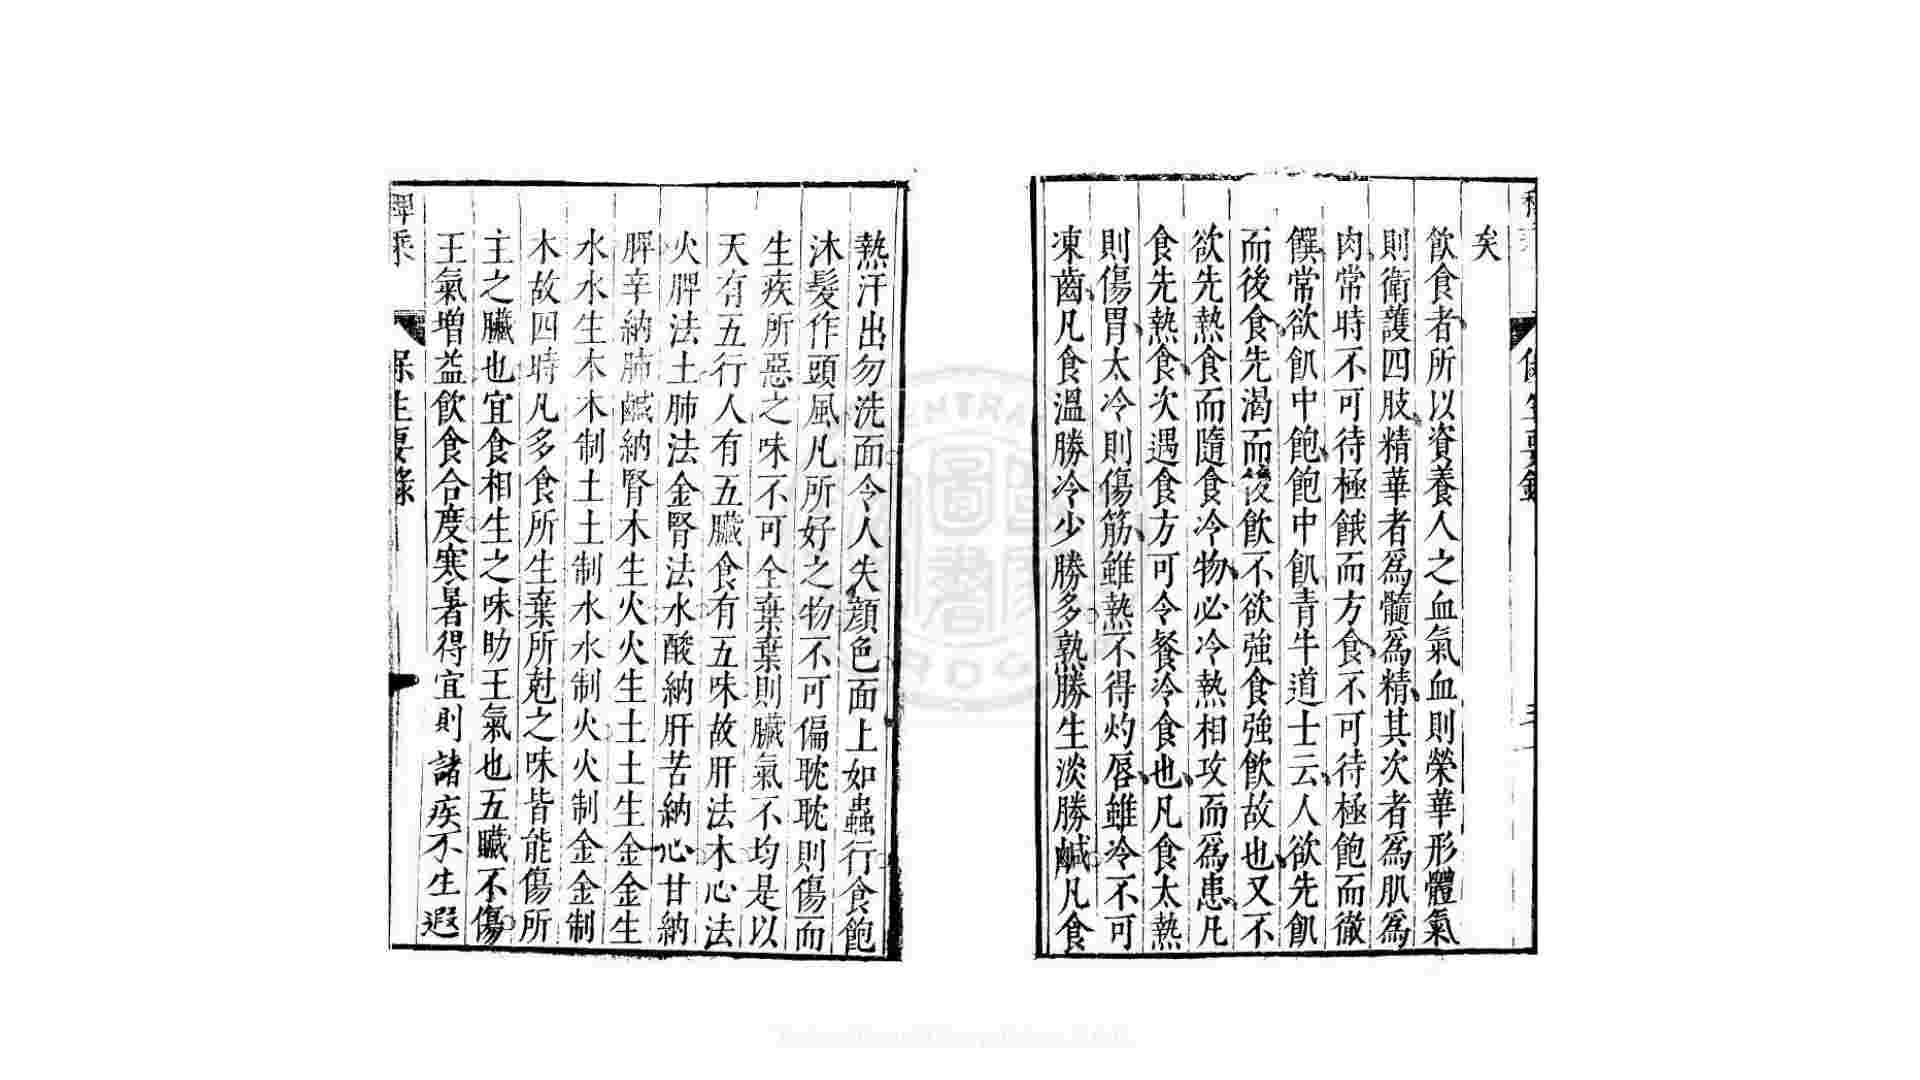 矣
飲食者所以資養人之血氣血則榮華形體氣
則衛護四肢精華者爲髓爲精其次者爲肌爲
肉常時不可待極餓而方食不可待極飽而徹
饌常欲飢中飽飽中飢青牛道士云人欲先飢
而後食先渴而後飲不欲強食強飲故也又不
欲先熱食而隨食冷物必冷熱相攻而爲患凡
食先熱食次遇食方可令餐冷食也凡食太熱
則傷胃太冷則傷筋雖熱不得灼唇雖冷不可
凍齒凡食溫勝冷少勝多熟勝生淡勝鹹凡食
熱汗出勿洗面令人失顏色面上如蟲行食飽
沐髮作頭風凡所好之物不可偏耽耽則傷而
生疾所惡之味不可全棄棄則臟氣不均是以
天有五行人有五臟食有五味故肝法木心法
火脾法土肺法金腎法水酸納肝苦納心甘納
脾辛納肺鹹納腎木生火火生土土生金金生
水水生木木制土土制水水制火火制金金制
木故四時凡多食所生棄所尅之味皆能傷所
主之臟也宜食相生之味助王氣也五臟不傷
王氣增益飲食合度寒暑得宜則諸疾不生遐
稗乘
保生要錄